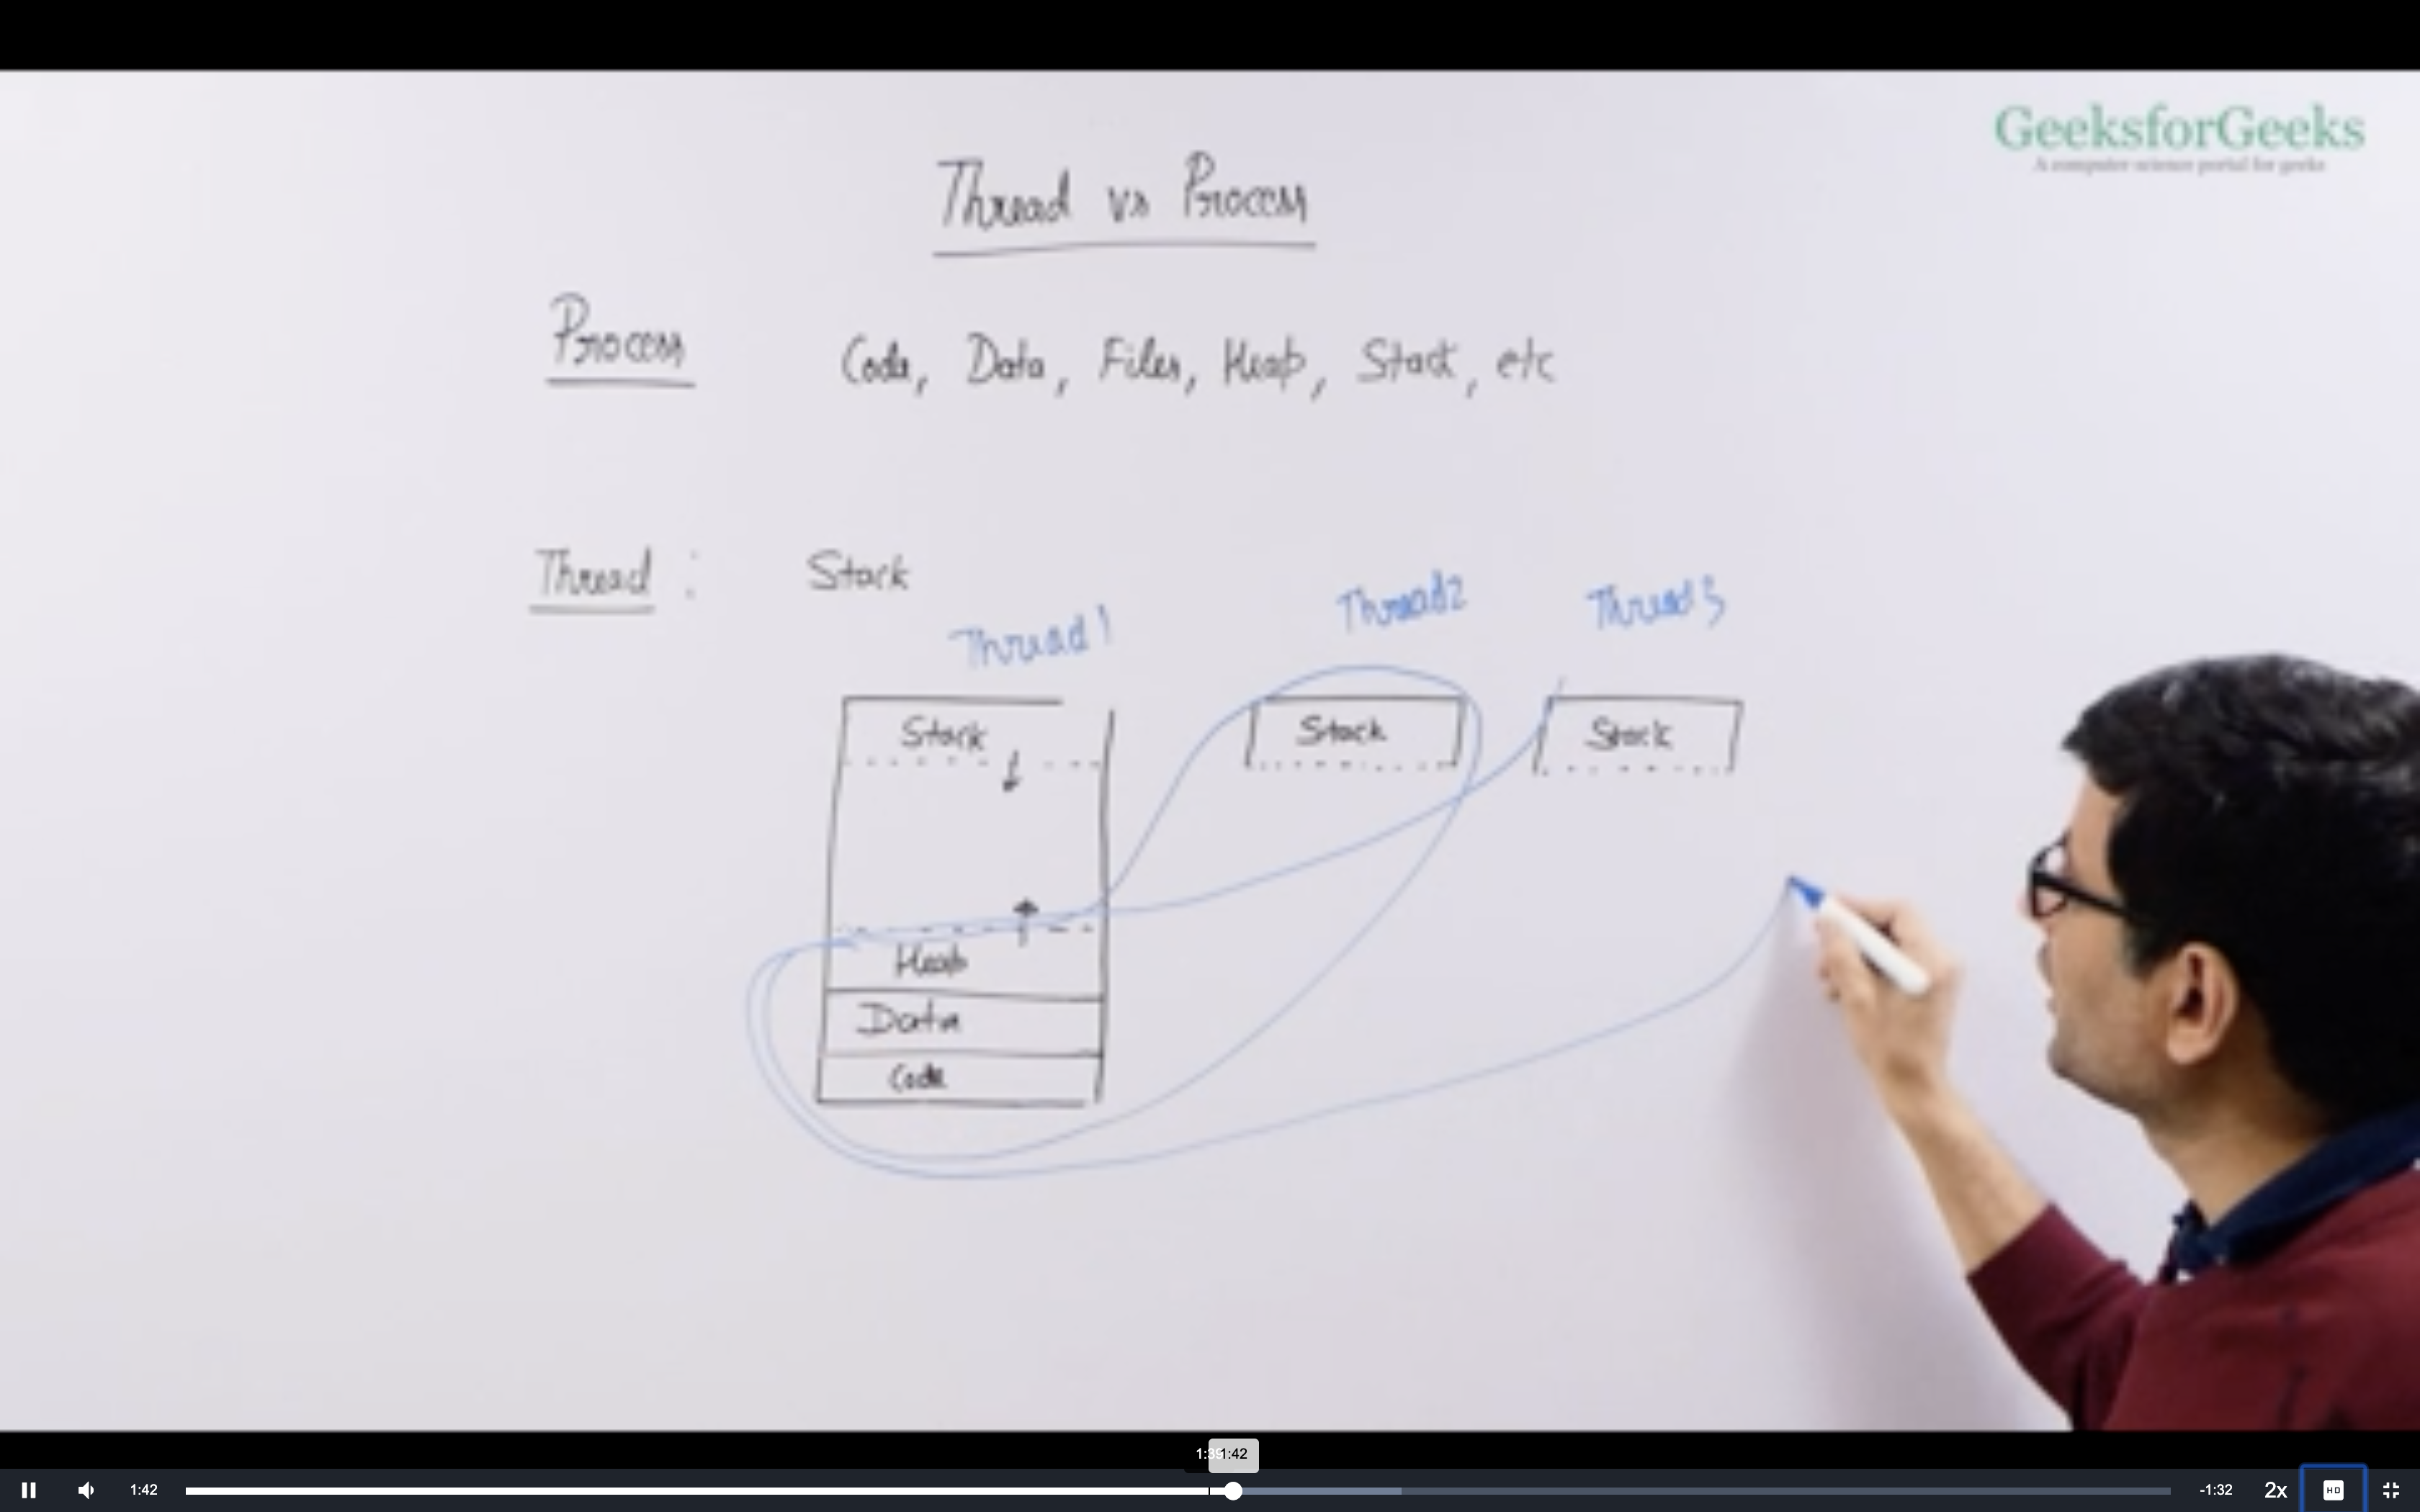 GeeksforGeeks
A computer science portal for geeks
Thread vs Process
Process
Code, Data, Files, Heap, Stack, etc
Thread : Stack
Thread 1
Thread2
Thread 3
Stack
Stack
Stack
Heap
Data
Code
1:42
1:42
-1:32
2x
HD